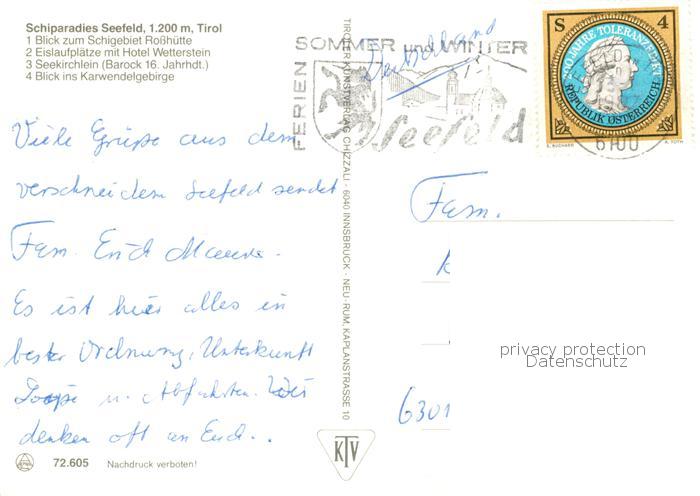 Schiparadies Seefeld, 1.200 m, Tirol
1 Blick zum Schigebiet Roßhütte
2 Eislaufplätze mit Hotel Wetterstein
3 Seekirchlein (Barock 16. Jahrhdt.)
4 Blick ins Karwendelgebirge
Viele Grüße aus dem
verschneiden Seefeld sendet
Fam. Erich
Es ist hier alles in
bester Ordnung, Unterkunft
u. Abfahrten. Wir
denken oft an Euch..
72.605 Nachdruck verboten!
TIROLER KUNSTVERLAG CHIZZALI · 6040 INNSBRUCK · NEU-RUM, KAPLANSTRASSE 10
KTV
SOMMER und WINTER
FERIEN
Seefeld
Deutschland
S 4
200 JAHRE TOLERANZPATENT
REPUBLIK ÖSTERREICH
6100
Fam.
k
6301
privacy protection
Datenschutz